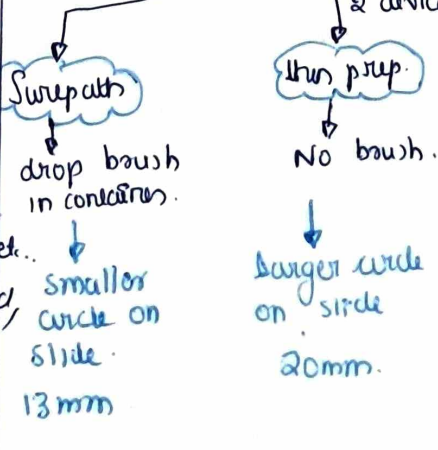 Surepath
drop brush
in container.
smaller
circle on
slide.
13 mm
thin prep.
No brush.
Larger circle
on slide
20mm.